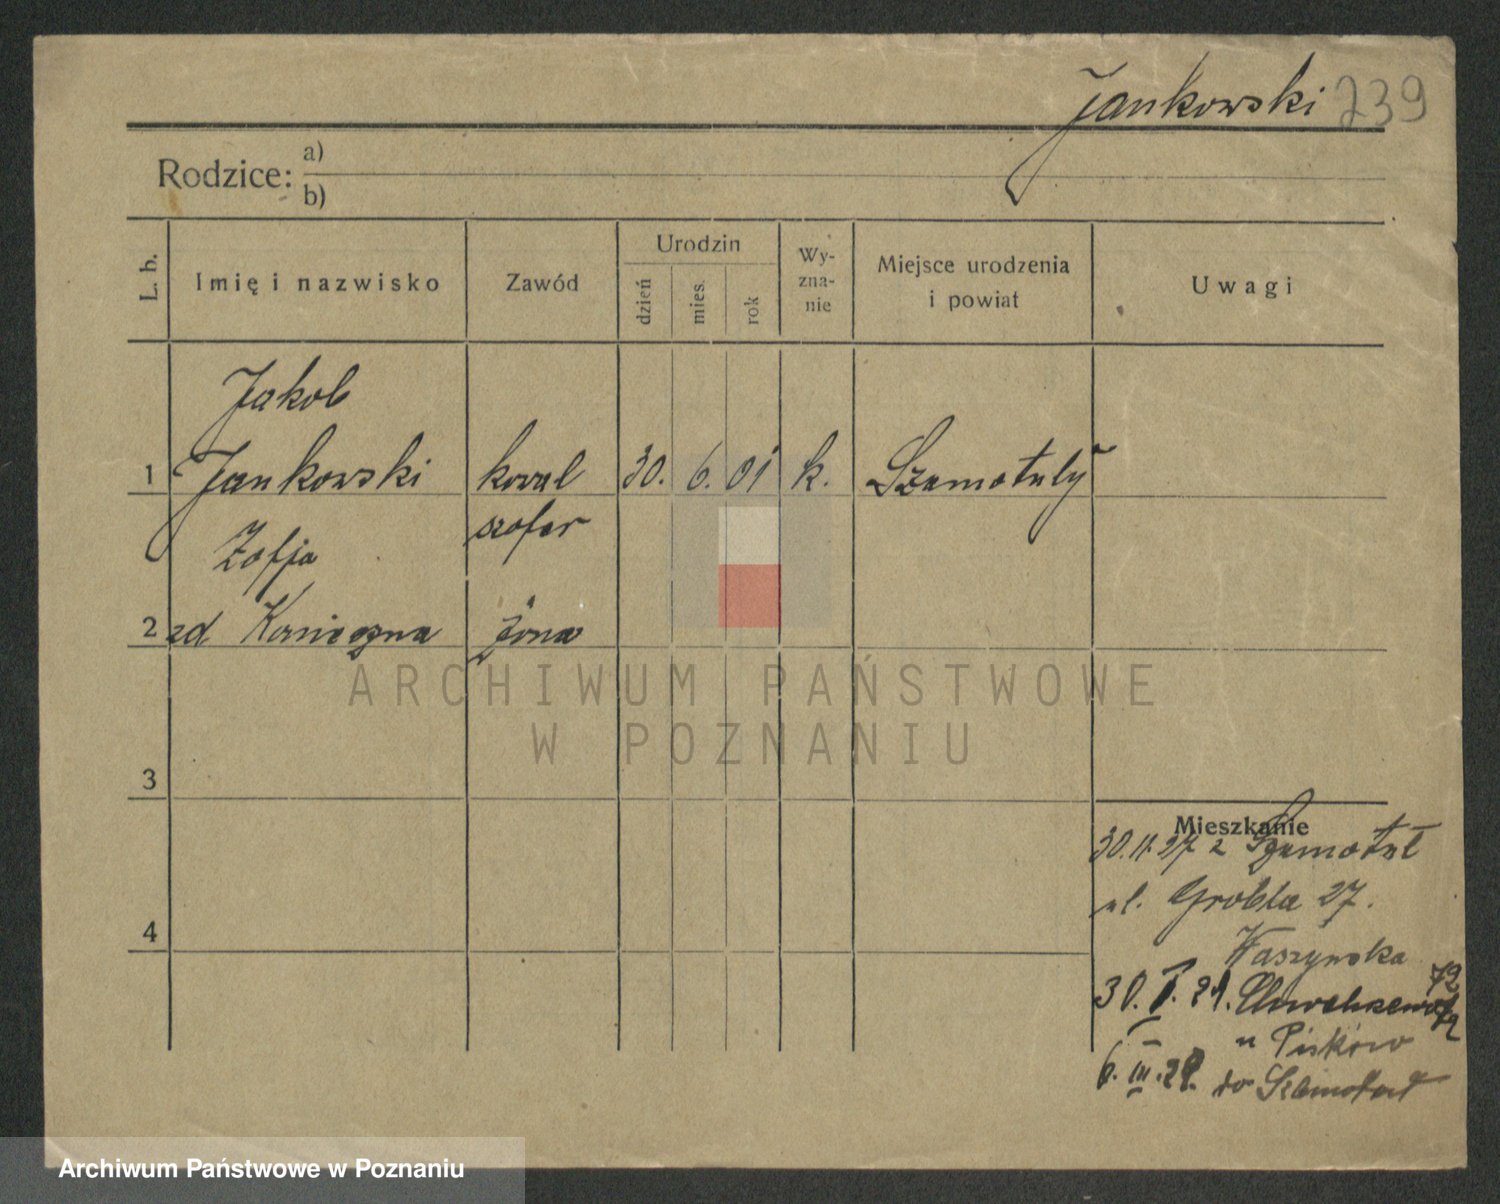 Jankowski 239
Rodzice: a)
b)
L. b.
Imię i nazwisko
Zawód
Urodzin
dzień
mies.
rok
Wy-
zna-
nie
Miejsce urodzenia
i powiat
Uwagi
Jakob
1 Jankowski kowal 30. 6. 01 k. Szamotuły
szofer
Zofja
2 zd Konieczna żona
ARCHIWUM PAŃSTWOWE
W POZNANIU
3
Mieszkanie
30.11.27 z Szamotuł
ul. Grobla 27.
4
30. 29.
u
6. III. 29. do Szamotuł
Archiwum Państwowe w Poznaniu